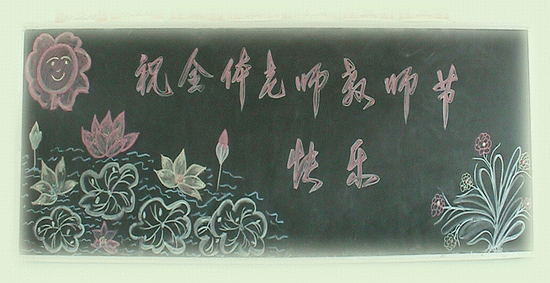 祝全体老师教师节
快乐